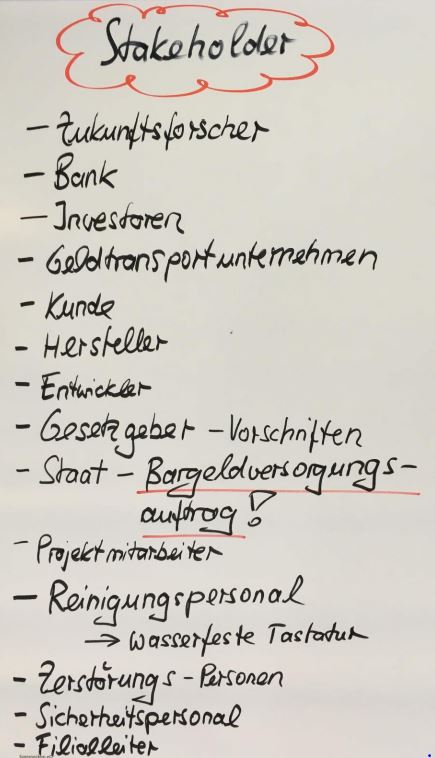 Stakeholder
- Zukunftsforscher
- Bank
- Investoren
- Geldtransportunternehmen
- Kunde
- Hersteller
- Entwickler
- Gesetzgeber - Vorschriften
- Staat - Bargeldversorgungs-
auftrag!
- Projektmitarbeiter
- Reinigungspersonal
→ wasserfeste Tastatur
- Zerstörungs-Personen
- Sicherheitspersonal
- Filialleiter